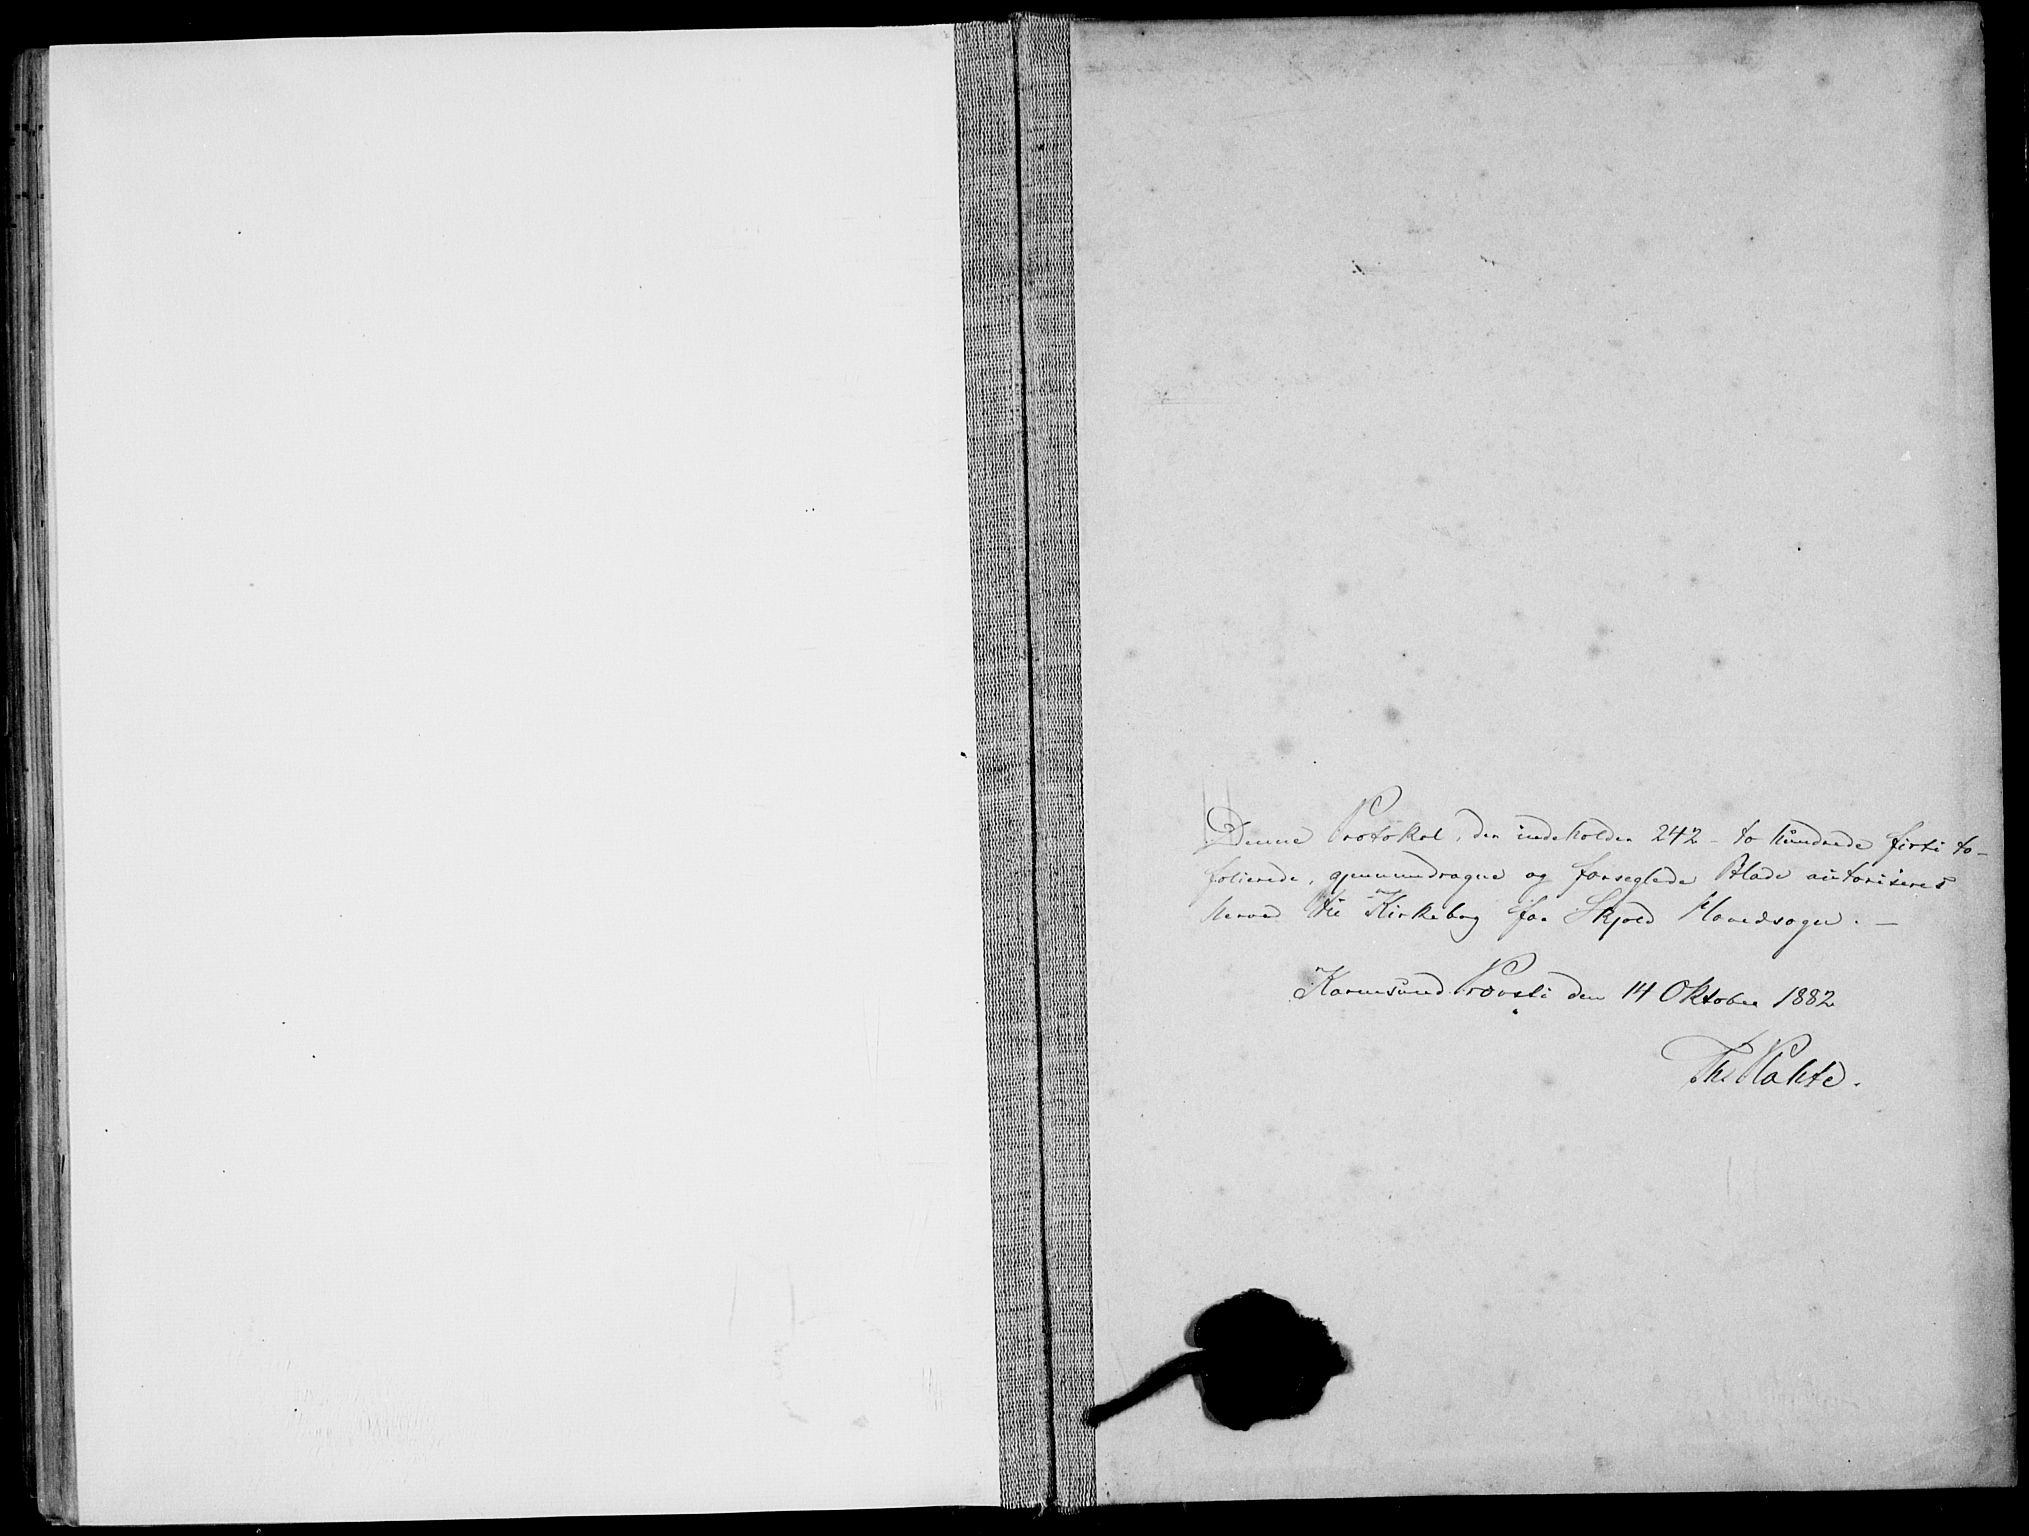 Denne Protokol, der indeholder 242 - to hundrede firti to -
folierede, gjennemdragne og forseglede Blade autoriseres
herved til Kirkebog for Skjold Hovedsogn. —
Karmsund Provsti den 14 Oktober 1882
Th.